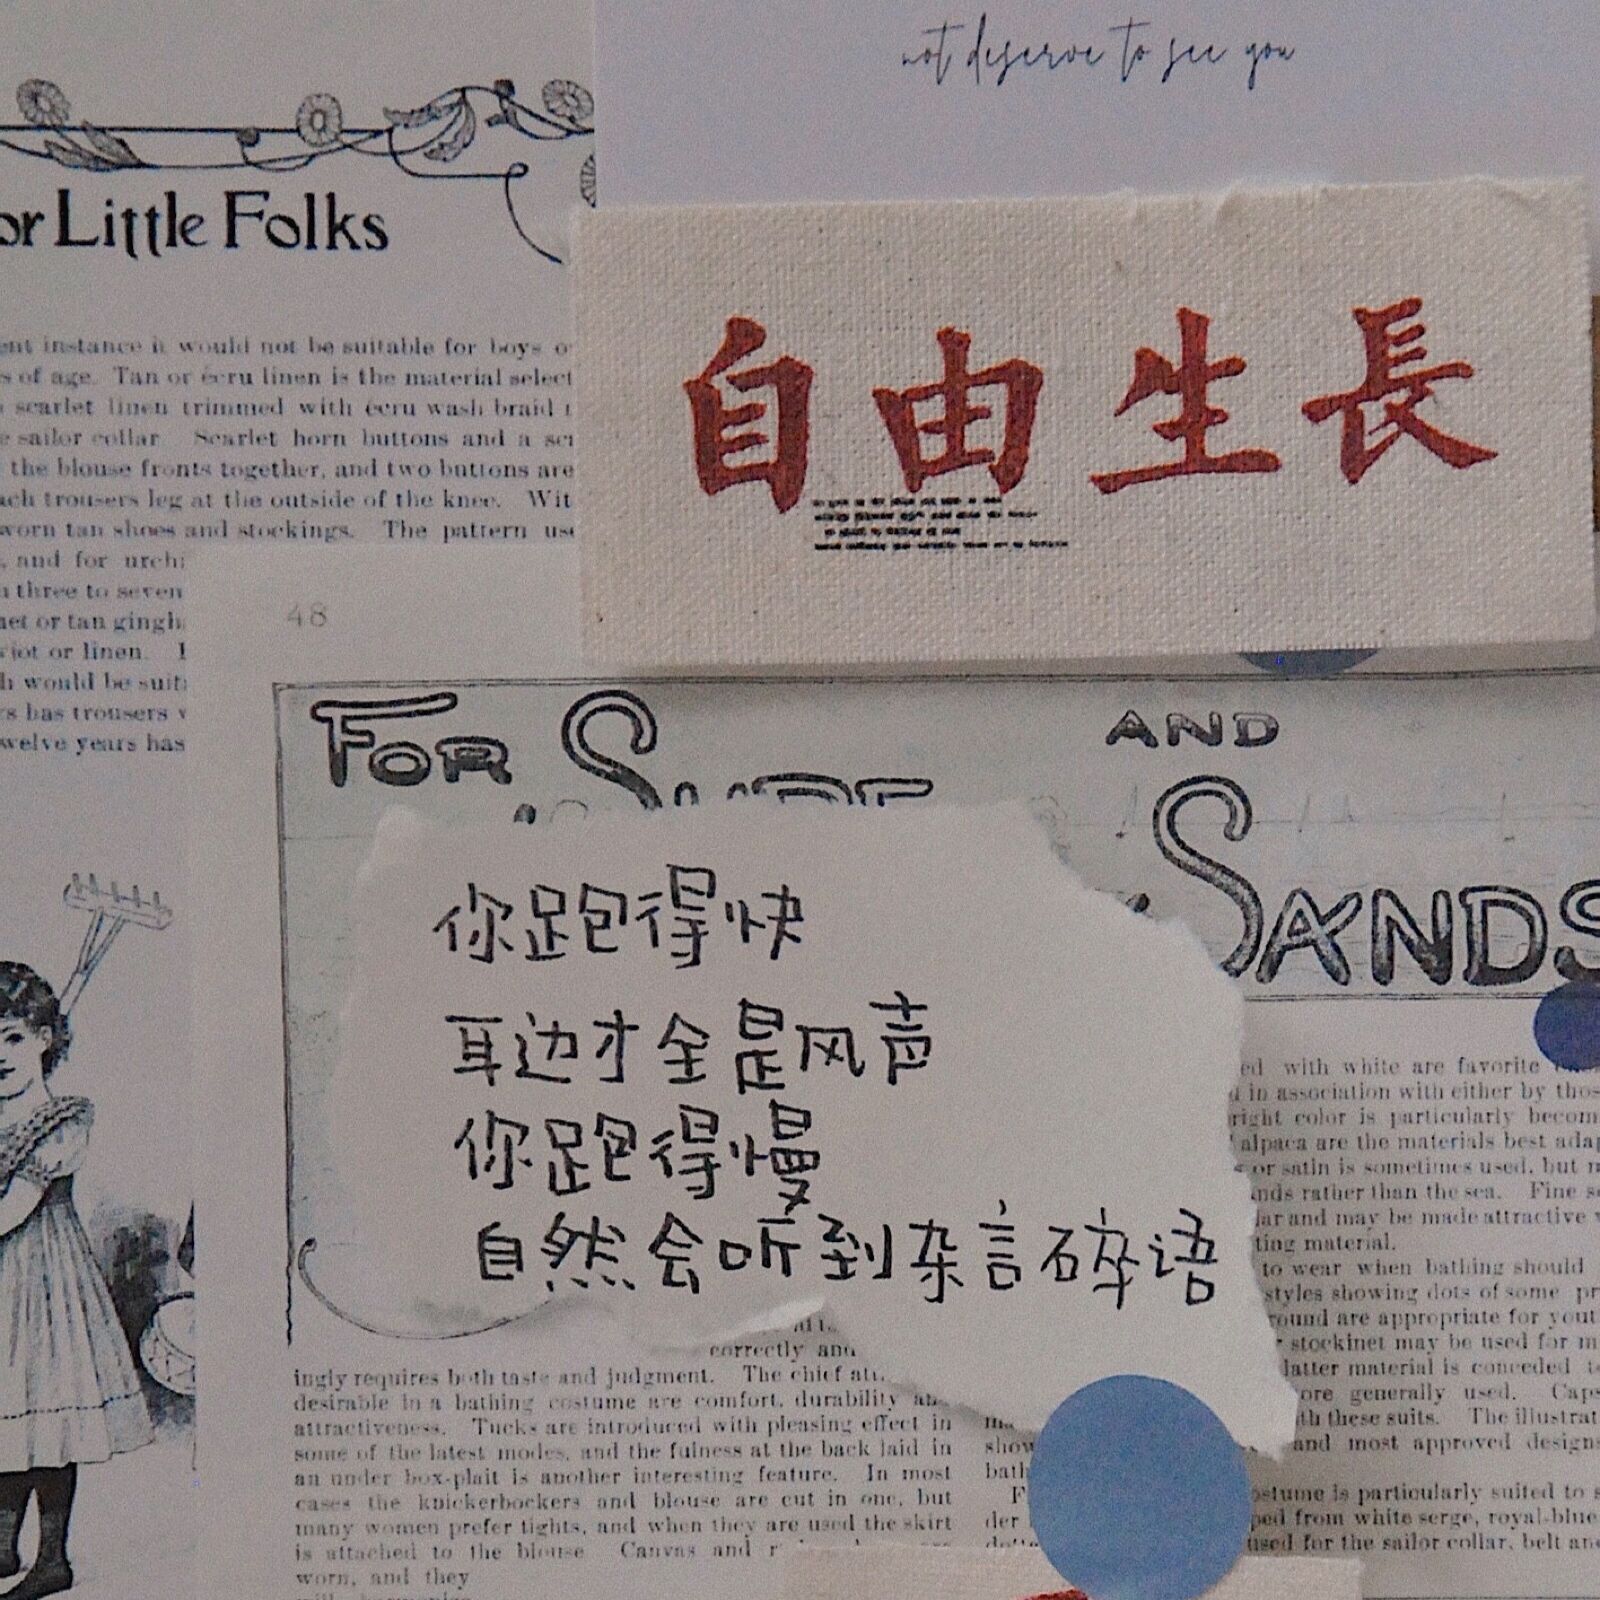 not deserve to see you
or Little Folks
自由生長
ent instance it would not be suitable for boys
s of age. Tan or écru linen is the material select
scarlet linen trimmed with écru wash braid
sailor collar. Scarlet horn buttons and a
the blouse fronts together, and two buttons are
ach trousers leg at the outside of the knee. Wit
worn tan shoes and stockings. The pattern use
, and for urchi
three to seven
net or tan gingh
viot or linen. I
h would be suit
rs has trousers
welve years has
48
FOR
AND
SANDS
你跑得快
耳边才全是风声
你跑得慢
自然会听到杂言碎语
ed with white are favorite
in association with either by thos
right color is particularly becom
alpaca are the materials best adap
or satin is sometimes used, but
nds rather than the sea. Fine
lar and may be made attractive
ting material.
to wear when bathing should
styles showing dots of some pr
round are appropriate for yout
stockinet may be used for
latter material is conceded
ore generally used. Caps
th these suits. The illustrat
and most approved designs
ostume is particularly suited to
ped from white serge, royal-blue
used for the sailor collar, belt an
correctly and
ingly requires both taste and judgment. The chief
desirable in a bathing costume are comfort, durability
attractiveness. Tucks are introduced with pleasing effect in
some of the latest modes, and the fulness at the back laid in
an under box-plait is another interesting feature. In most
cases the knickerbockers and blouse are cut in one, but
many women prefer tights, and when they are used the skirt
is attached to the blouse. Canvas and
worn, and they
show
bath
F
der